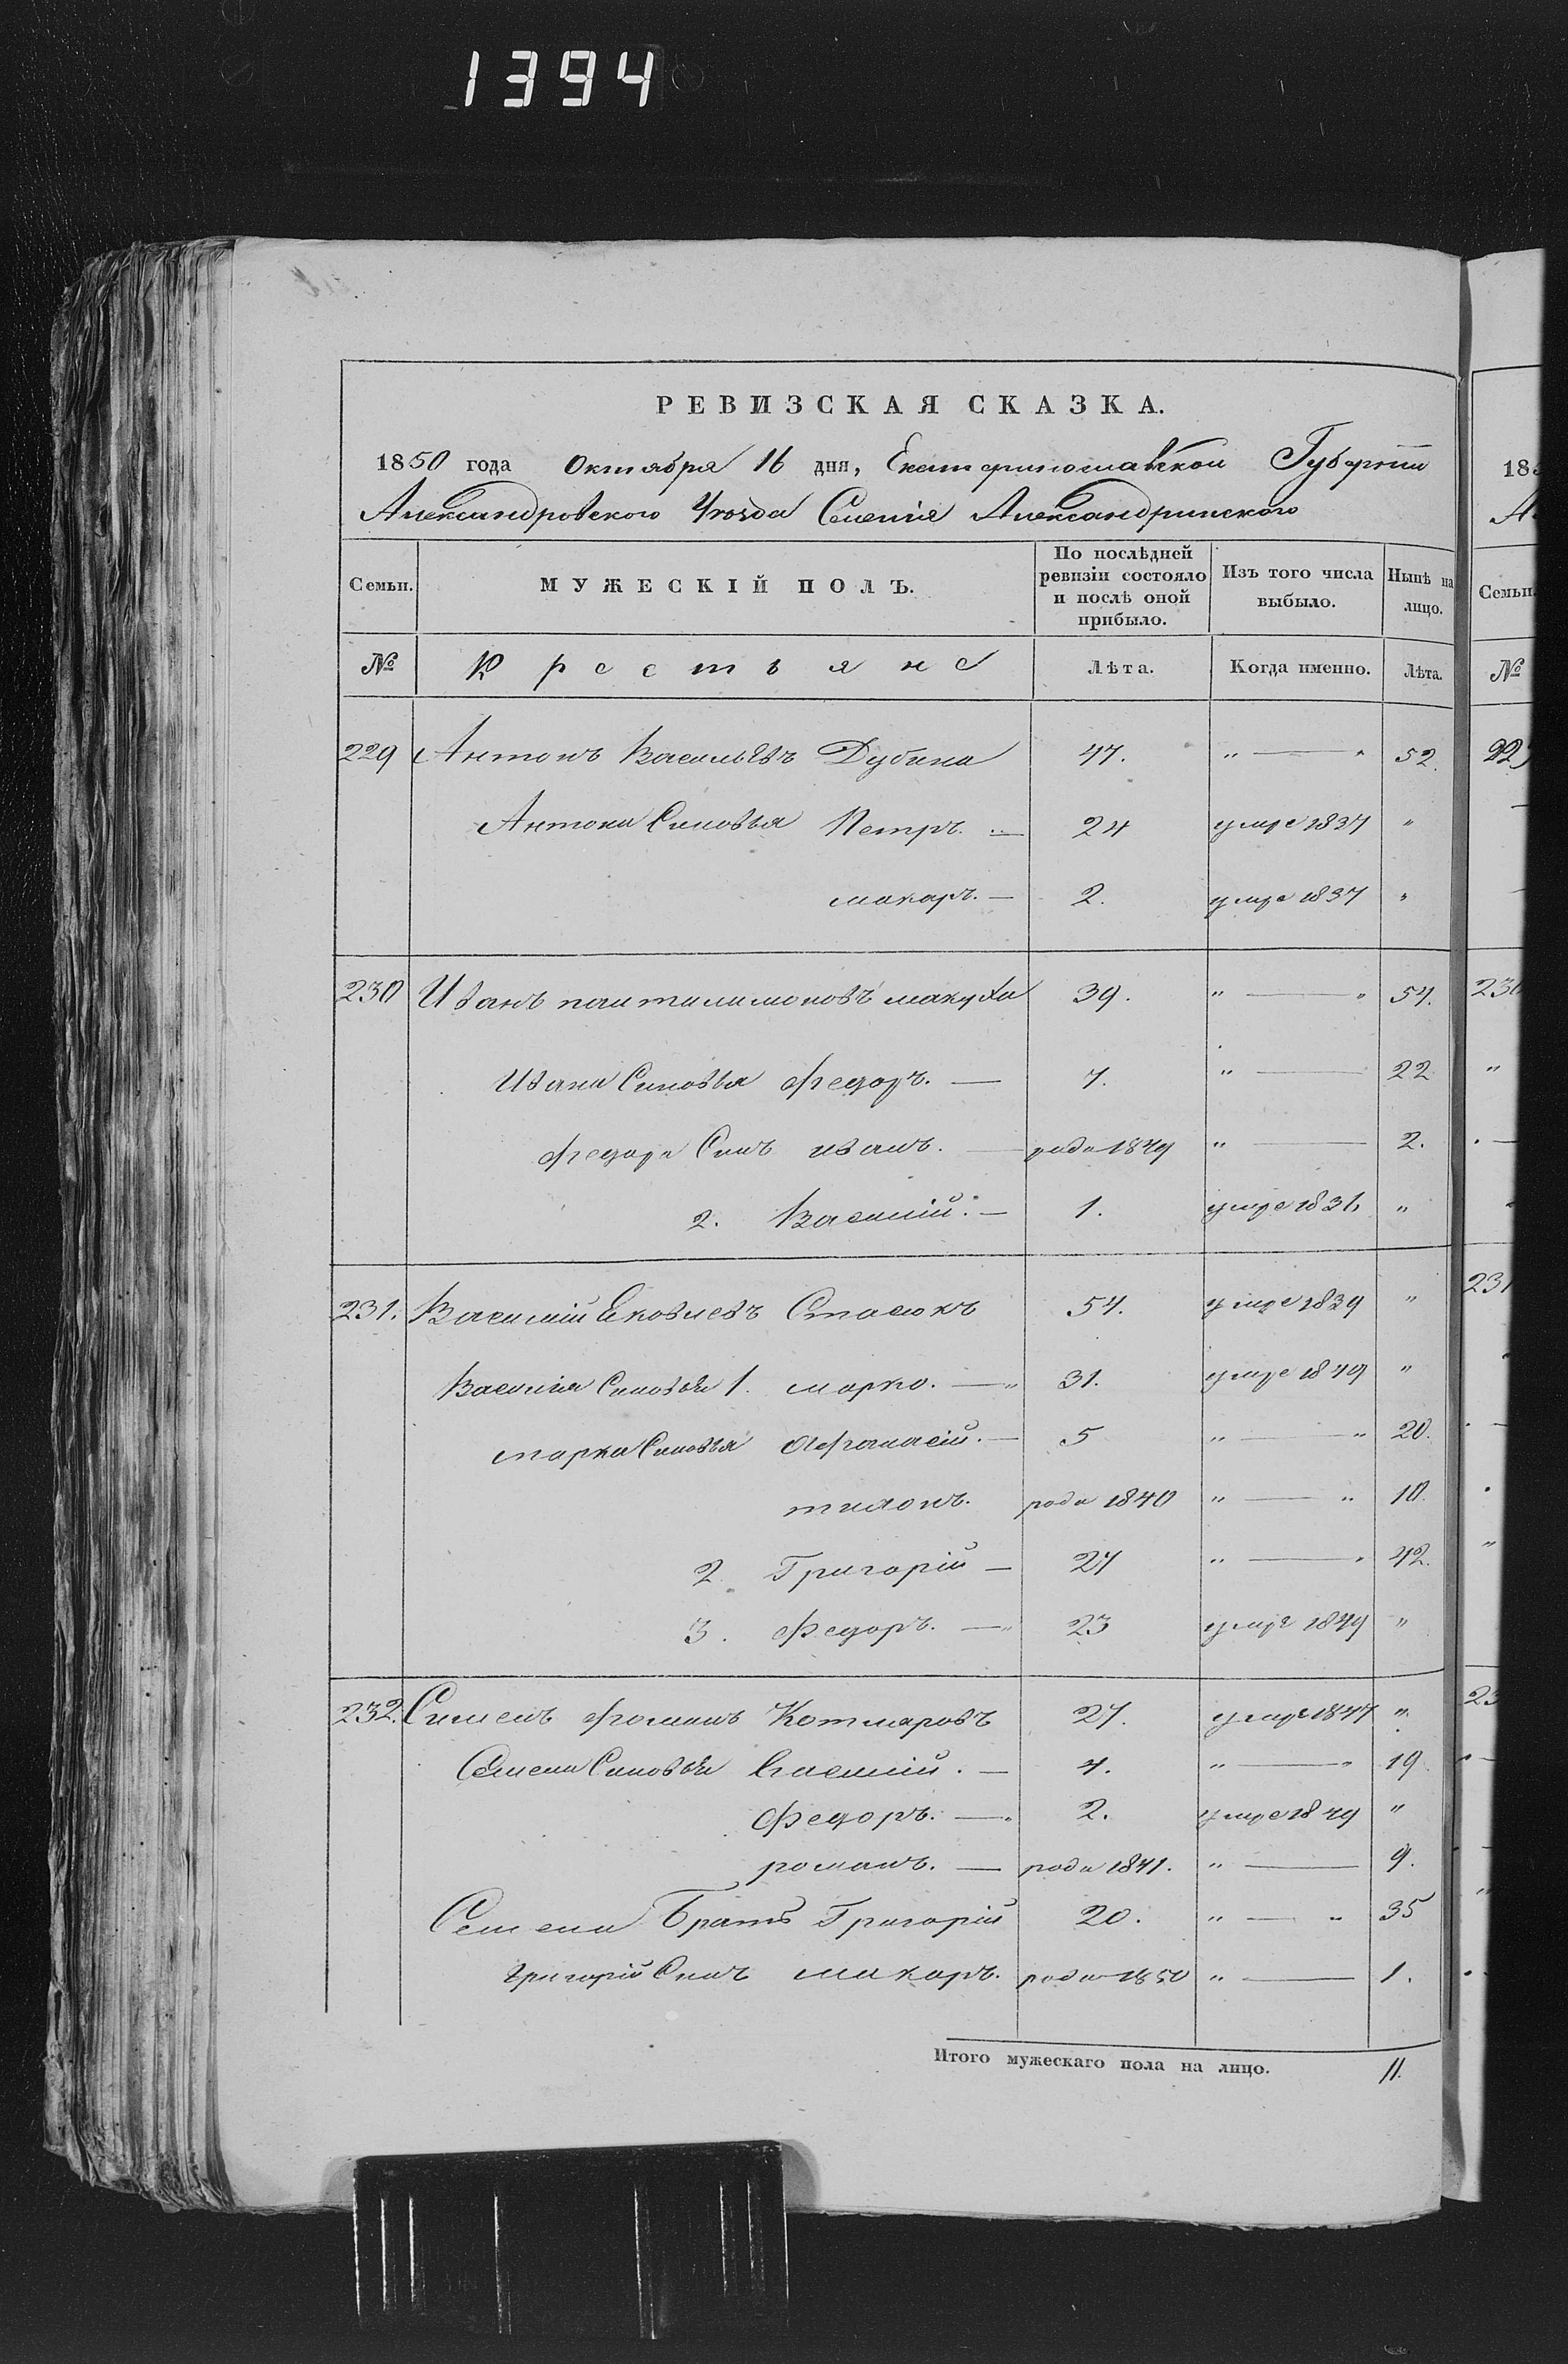 1394
РЕВИЗСКАЯ СКАЗКА.
1850 года Октября 16 дня, Екатеринославской Губернии
Александровского Уезда Селения Александринского
Семьи. МУЖЕСКІЙ ПОЛЪ. По послѣдней ревизіи состояло и послѣ оной прибыло. Изъ того числа выбыло. Нынѣ на лицо.
№ Крестьяне Лѣта. Когда именно. Лѣта.
229 Антонъ Васильевъ Дубина 47. " — " 52.
Антона Синовья Петръ. — 24 умре 1837 "
макаръ. — 2. умре 1837 "
230 Иванъ пантилимоновъ макуха 39. " — " 54.
Ивана Синовья федоръ. — 7. " — 22
федора Синъ иванъ. — рода 1849 " — 2.
2. Василій. — 1. умре 1836 "
231. Василій Яковлевъ Стасюкъ 54. умре 1839 "
Василия Синовья 1. марко. — " 31. умре 1849 "
марка Синовья Афанасій. — 5 " — " 20.
тихонъ. рода 1840 " — " 10.
2 Григорій — 27 " — " 42.
3. федоръ. — " 23 умре 1849 "
232. Сименъ Котляровъ 27. умре 1847 "
Семена Синовья Василій. — 4. " — " 19
федоръ. — " 2. умре 1849 "
романъ. — рода 1841. " — 9.
Семена Братъ Григорій 20. " — " 35
Григорій Синъ макаръ. рода 1850 " — 1.
Итого мужескаго пола на лицо. 11.